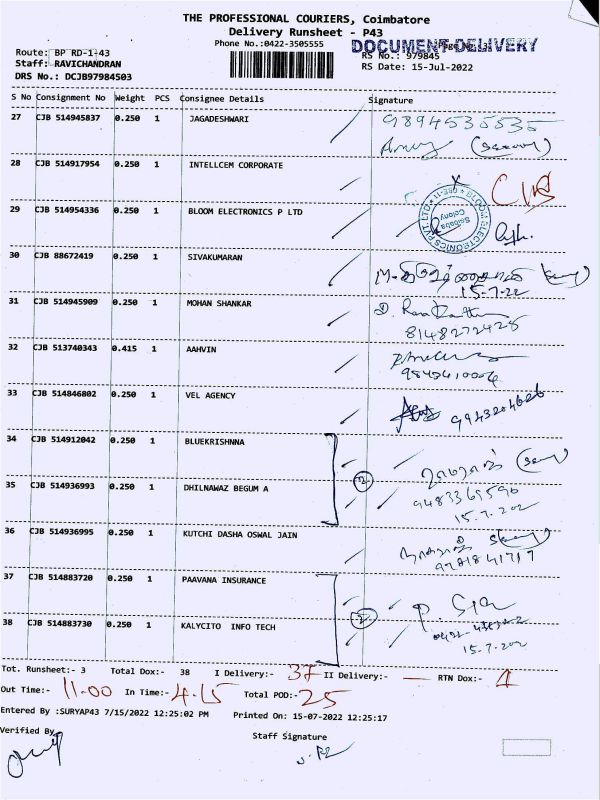 THE PROFESSIONAL COURIERS, Coimbatore
Delivery Runsheet - P43
Phone No.:0422-3505555
DOCUMENT DELIVERY
Route: BP RD-1-43
Staff: RAVICHANDRAN
DRS No.: DCJB97984503
RS No.: 979845
RS Date: 15-Jul-2022
S No Consignment No Weight PCS Consignee Details Signature
27 CJB 514945837 0.250 1 JAGADESHWARI 9894535535
28 CJB 514917954 0.250 1 INTELLCEM CORPORATE
29 CJB 514954336 0.250 1 BLOOM ELECTRONICS P LTD
BLOOM ELECTRONICS PVT. LTD
Saibaba Colony
30 CJB 88672419 0.250 1 SIVAKUMARAN
15-7-22
31 CJB 514945909 0.250 1 MOHAN SHANKAR
8148272425
32 CJB 513740343 0.415 1 AAHVIN
33 CJB 514846802 0.250 1 VEL AGENCY
34 CJB 514912042 0.250 1 BLUEKRISHNNA
35 CJB 514936993 0.250 1 DHILNAWAZ BEGUM A
2
9483369590
36 CJB 514936995 0.250 1 KUTCHI DASHA OSWAL JAIN
37 CJB 514883720 0.250 1 PAAVANA INSURANCE
2
38 CJB 514883730 0.250 1 KALYCITO INFO TECH
Tot. Runsheet:- 3 Total Dox:- 38 I Delivery:- 37 II Delivery:- — RTN Dox:- 1
Out Time:- 11-00 In Time:- 4-15 Total POD:- 25
Entered By :SURYAP43 7/15/2022 12:25:02 PM Printed On: 15-07-2022 12:25:17
Verified By
Staff Signature